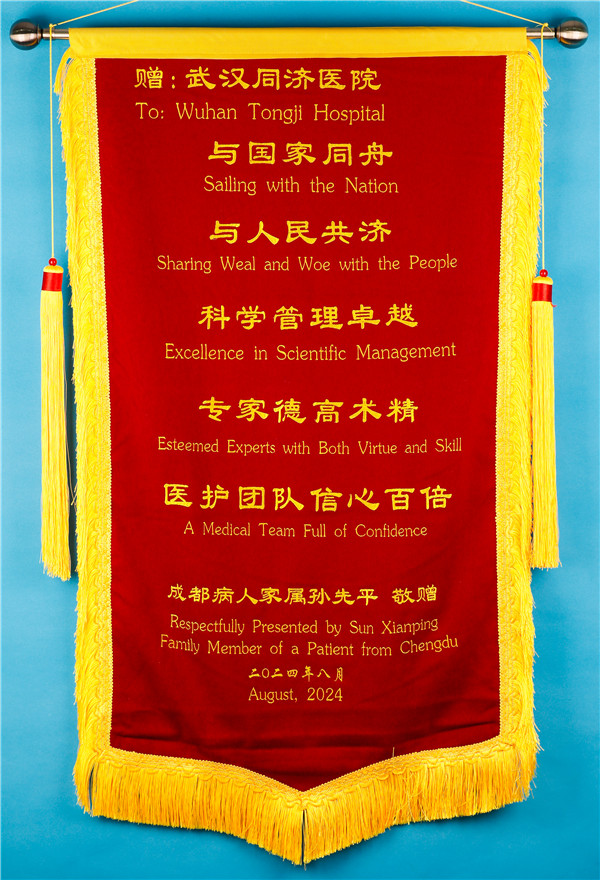 赠：武汉同济医院
To: Wuhan Tongji Hospital
与国家同舟
Sailing with the Nation
与人民共济
Sharing Weal and Woe with the People
科学管理卓越
Excellence in Scientific Management
专家德高术精
Esteemed Experts with Both Virtue and Skill
医护团队信心百倍
A Medical Team Full of Confidence
成都病人家属孙先平 敬赠
Respectfully Presented by Sun Xianping
Family Member of a Patient from Chengdu
二〇二四年八月
August, 2024